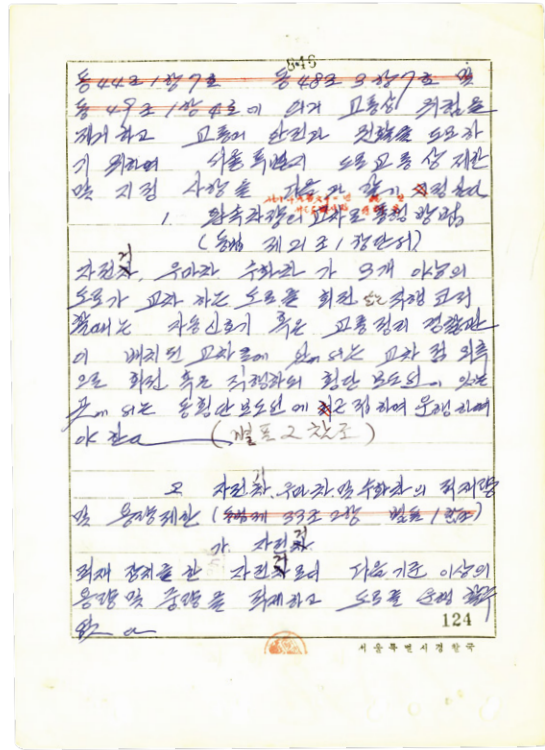 646
동 44조 1항 7호 동 48조 3항 7호 및
동 49조 1항 4호에 의거 교통상 위험을
제거하고 교통의 안전과 원활을 도모하
기 위하여 서울특별시 도로교통상 제한
및 지정 사항을 다음과 같이
1. 교차로 통행 방법
(동법 제21조 1항 단서)
자전거, 우마차 수화차가 3개 이상의
도로가 교차하는 도로를 회전 또는 직행코저
할때는 자동신호기 혹은 교통정리 경찰관
이 배치된 교차로에 교차점 외측
으로 회전 혹은 직행하되 횡단보도선이 있는
곳에서는 동 횡단보도선에 근접하여 운행하여
야 한다 (별표 2 참조)
2. 자전거, 우마차 및 수화차의 적재량
및 용량제한 (동법 제 33조 2항 별표 1 참조)
가 자전거
적재 장치를 한 자전거로서 다음 기준 이상의
용량 및 중량을 적재하고 도로를 운행 할수
없다
124
서울특별시경찰국